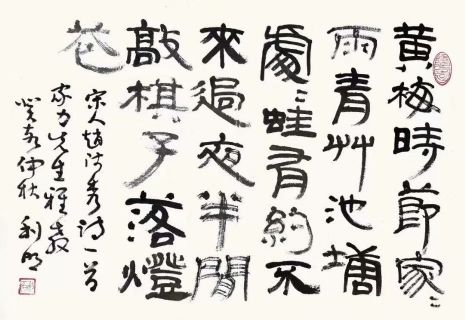 黄梅時節家〻
雨青艸池塘
處〻蛙有約不
來過夜半閒
敲棋子落燈
花
宋人趙師秀詩一首
家力先生雅教
癸亥仲秋 利明